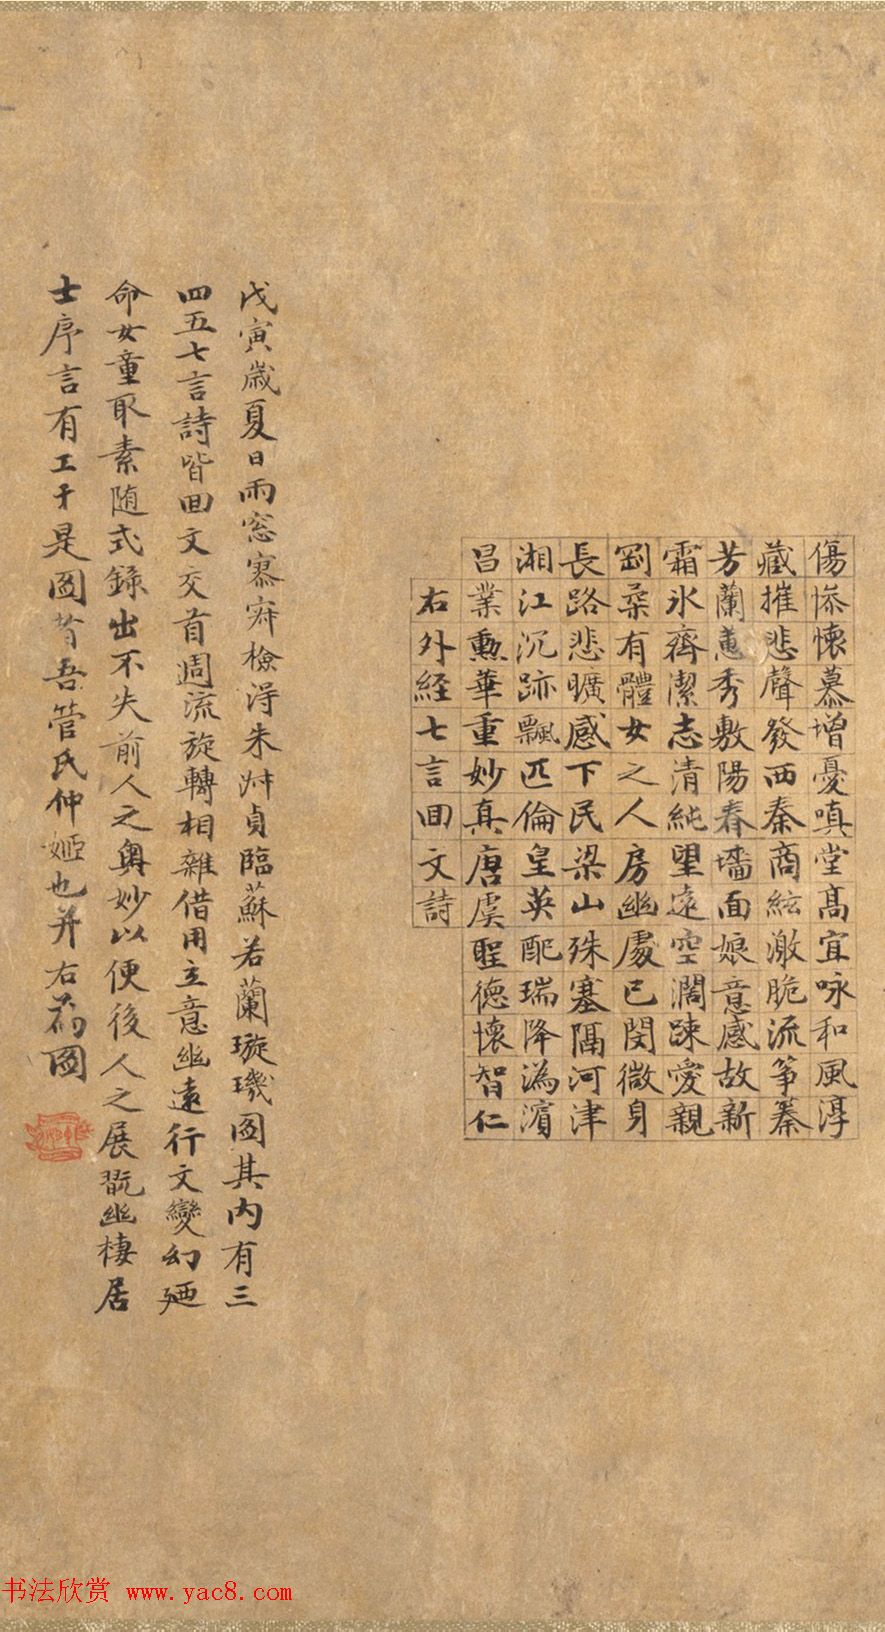 傷慘懷慕增憂嗔堂髙宜咏和風淳
藏摧悲聲發西秦商絃激脆流筝蓁
芳蘭蕙秀敷陽春墻面娘意感故新
霜氷齊潔志清純望遠空濶踈愛親
剛柔有體女之人房幽處已閔微身
長路悲曠感下民梁山殊塞隔河津
湘江沉跡飄匹倫皇英配瑞降溈濵
昌業勲華重妙真唐虞聖德懷智仁
右外経七言回文詩
戊寅歲夏日雨窓寡檢淂朱淑貞臨蘇若蘭璇璣圖其内有三
四五七言詩皆回文交首週流旋轉相雜借用立意幽遠行文變幻廼
命女童取素随式錄出不失前人之奥妙以便後人之展翫幽棲居
士序言有工于是圖者吾管氏仲姬也并右為圖
书法欣赏 www.yac8.com